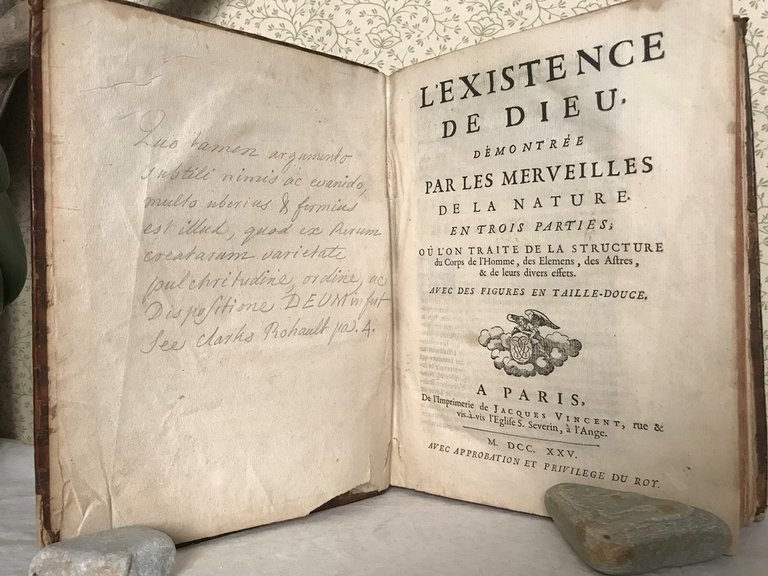 Quo tamen argumento
subtili nimis ac evanido,
multo uberius & firmius
est illud, quod ex Rerum
creatarum varietate
pulchritudine, ordine, ac
Dispositione DEUM infert
See Clarks Rohault pa. 4.
L'EXISTENCE
DE DIEU,
DÉMONTRÉE
PAR LES MERVEILLES
DE LA NATURE.
EN TROIS PARTIES;
OÙ L'ON TRAITE DE LA STRUCTURE
du Corps de l'Homme, des Elemens, des Astres,
& de leurs divers effets.
AVEC DES FIGURES EN TAILLE-DOUCE.
A PARIS,
De l'Imprimerie de JACQUES VINCENT, rue &
vis-à-vis l'Eglise S. Severin, à l'Ange.
M. DCC. XXV.
AVEC APPROBATION ET PRIVILEGE DU ROY.